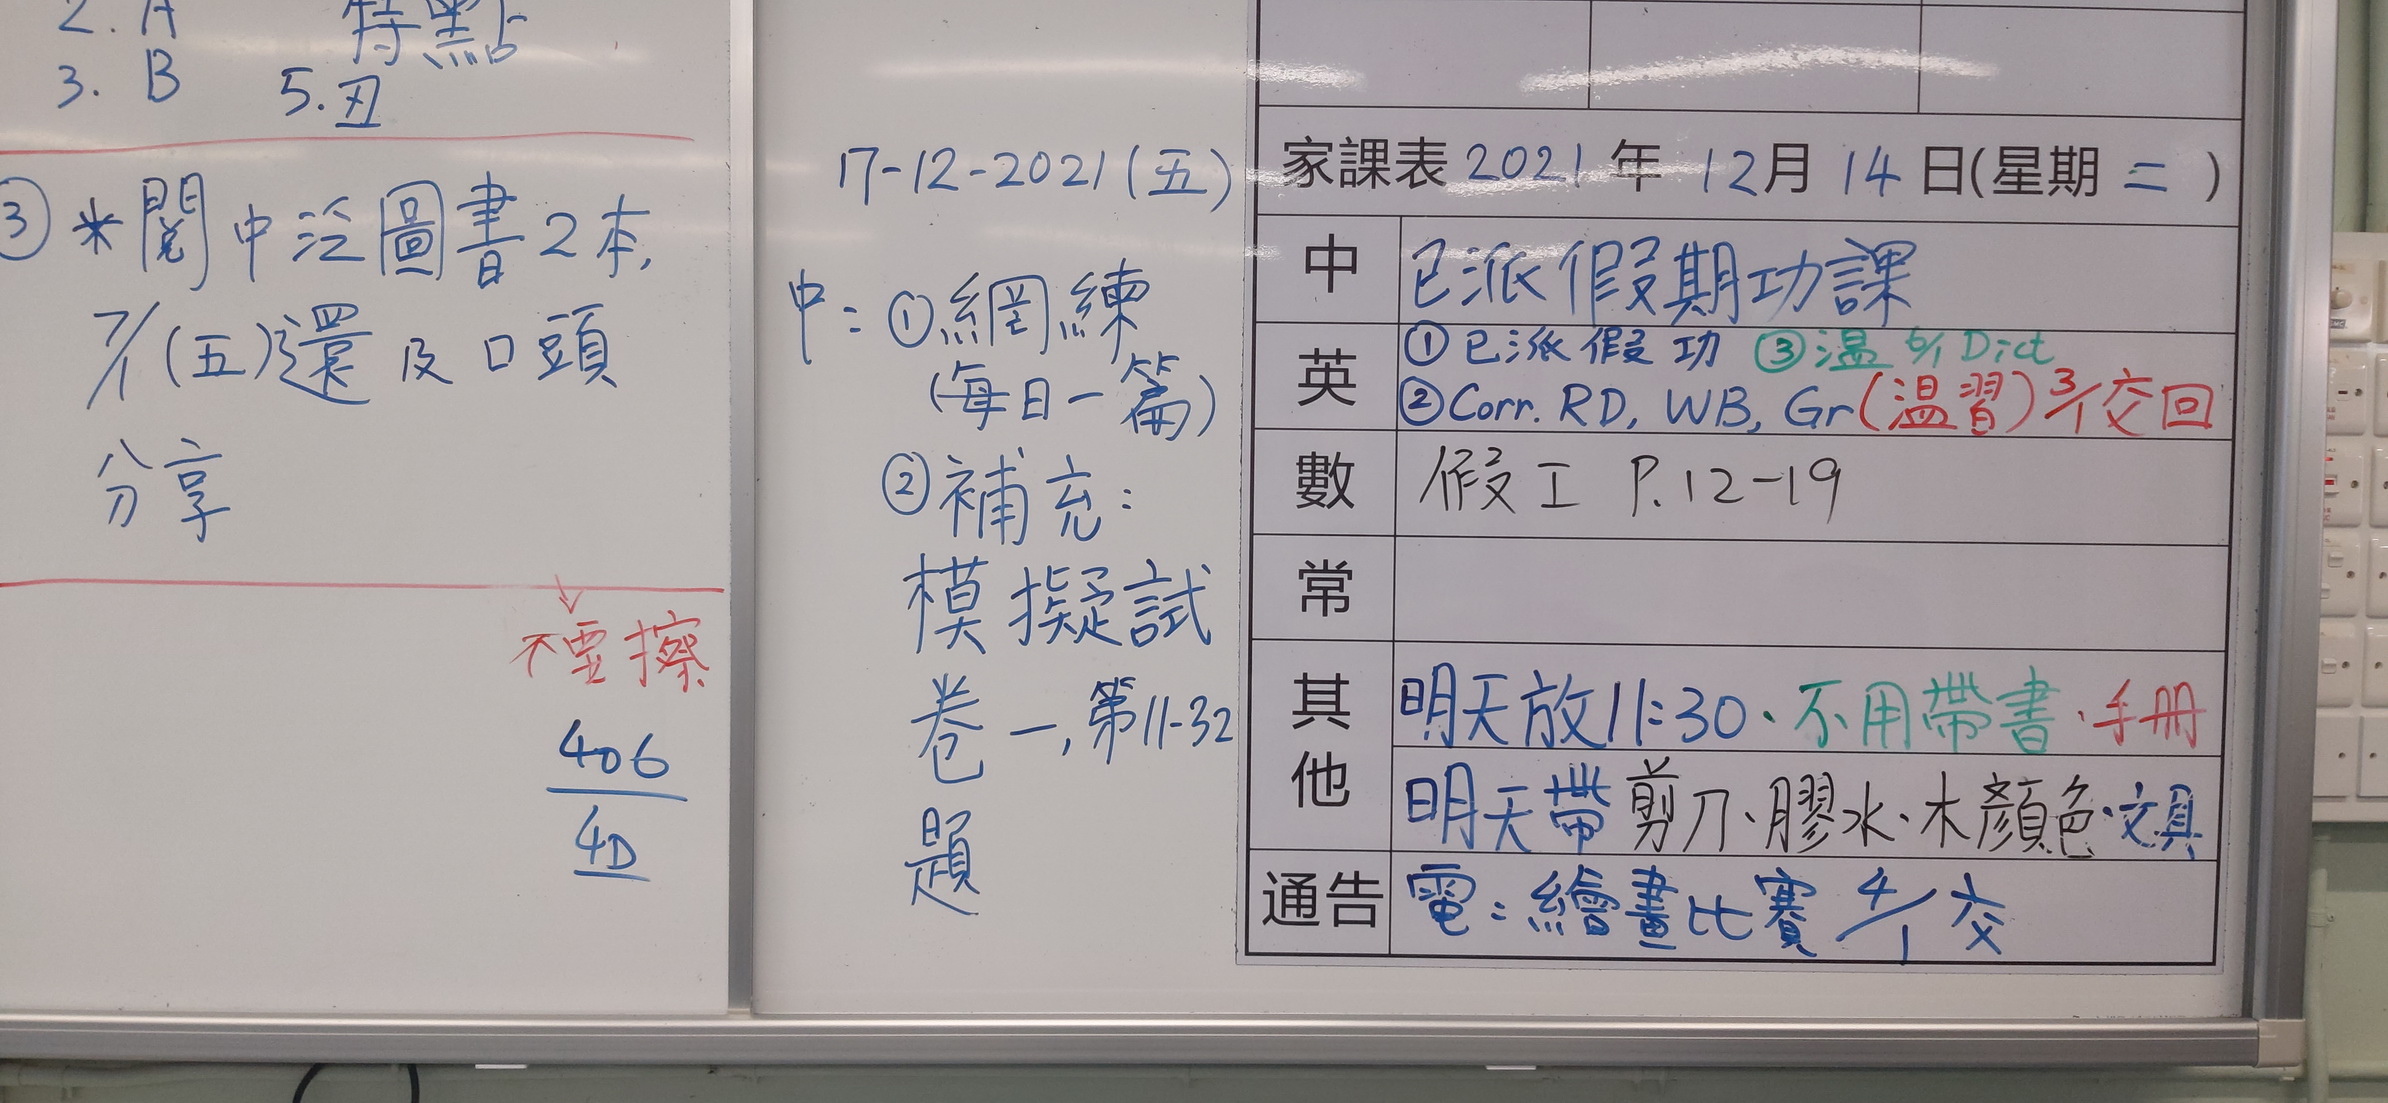 2. A
特點
3. B
5. 丑
③ *閱中泛圖書2本,
7/1(五)還及口頭
分享
不要擦
406
4D
17-12-2021(五)
中:①網練
(每日一篇)
②補充:
模擬試
卷一,第11-32
題
家課表2021年12月14日(星期二)
中 已派假期功課
英 ①已派假功 ③溫 6/1 Dict
②Corr. RD, WB, Gr(溫習)3/1交回
數 假工 P.12-19
常
其他 明天放11:30、不用帶書、手冊
明天帶剪刀、膠水、木顏色、文具
通告 電:繪畫比賽 4/1 交